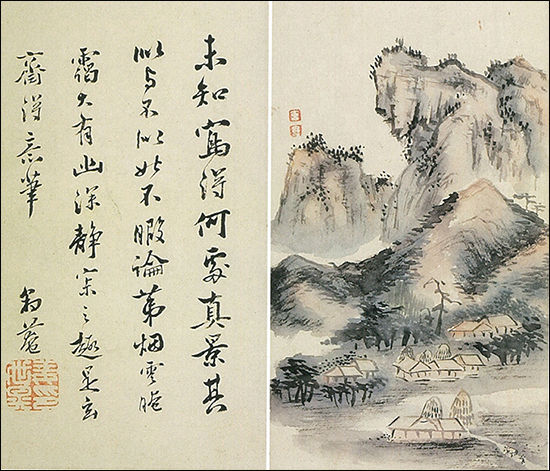 未知寫得何處真景其
似与不似此不暇論第烟雲晻
靄大有幽深静寂之趣是玄
齋得意筆
豹菴